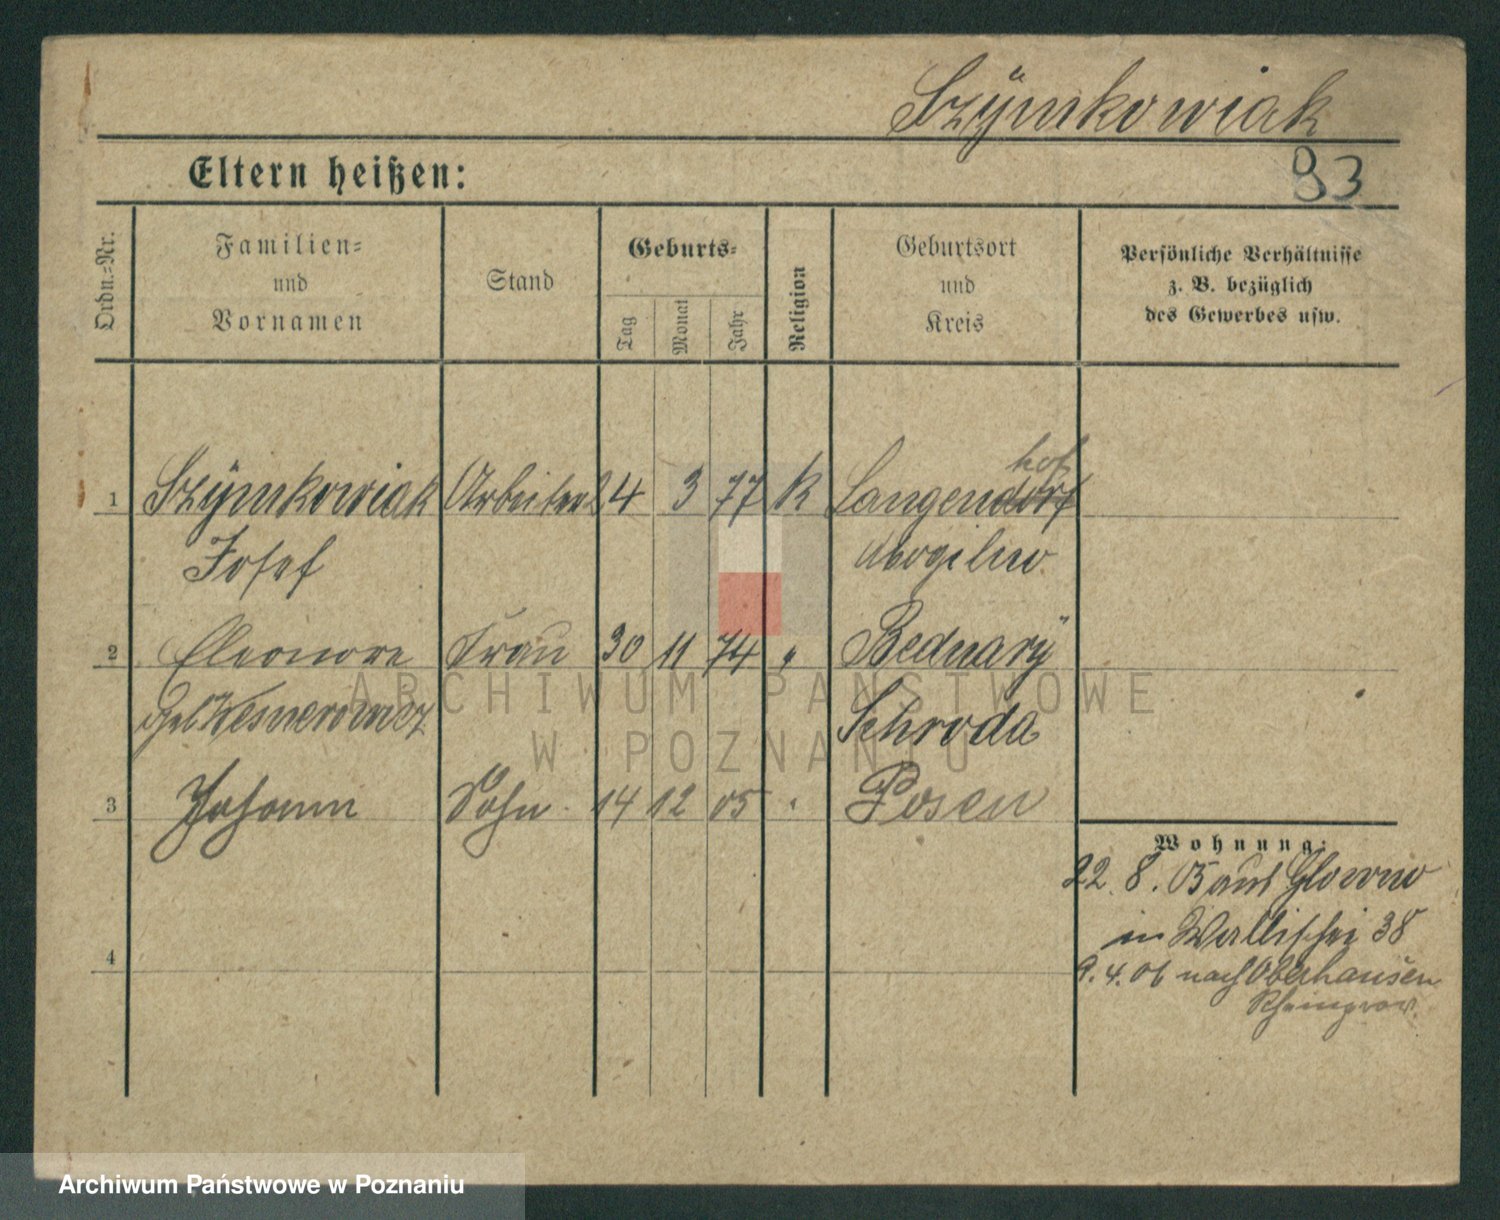 Szymkowiak
Eltern heißen:
93
Ordn.=Nr.
Familien=
und
Vornamen
Stand
Geburts=
Tag
Monat
Jahr
Religion
Geburtsort
und
Kreis
Persönliche Verhältnisse
z. B. bezüglich
des Gewerbes usw.
hof
1 Szÿmkowiak Arbeiter 24 3 77 K Langendorf
Josef Mogilno
2 Eleonore Frau 30 11 74 " Bednarÿ
geb. Schroda
3 Johann Sohn 14 12 05 " Posen
Wohnung:
22. 8. 05 aus Glowno
in Wallischei 38
9. 4. 06 nach Oberhausen
Rheinprov.
4
ARCHIWUM PAŃSTWOWE
W POZNANIU
Archiwum Państwowe w Poznaniu